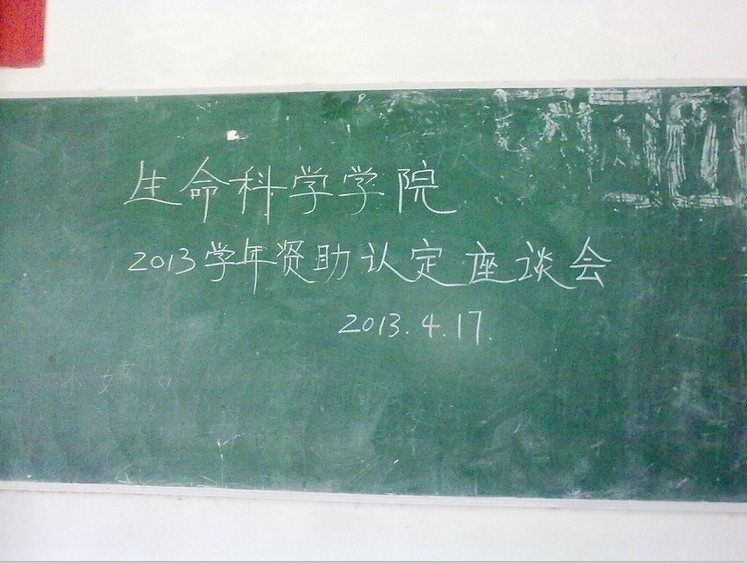 生命科学学院
2013学年资助认定座谈会
2013.4.17.